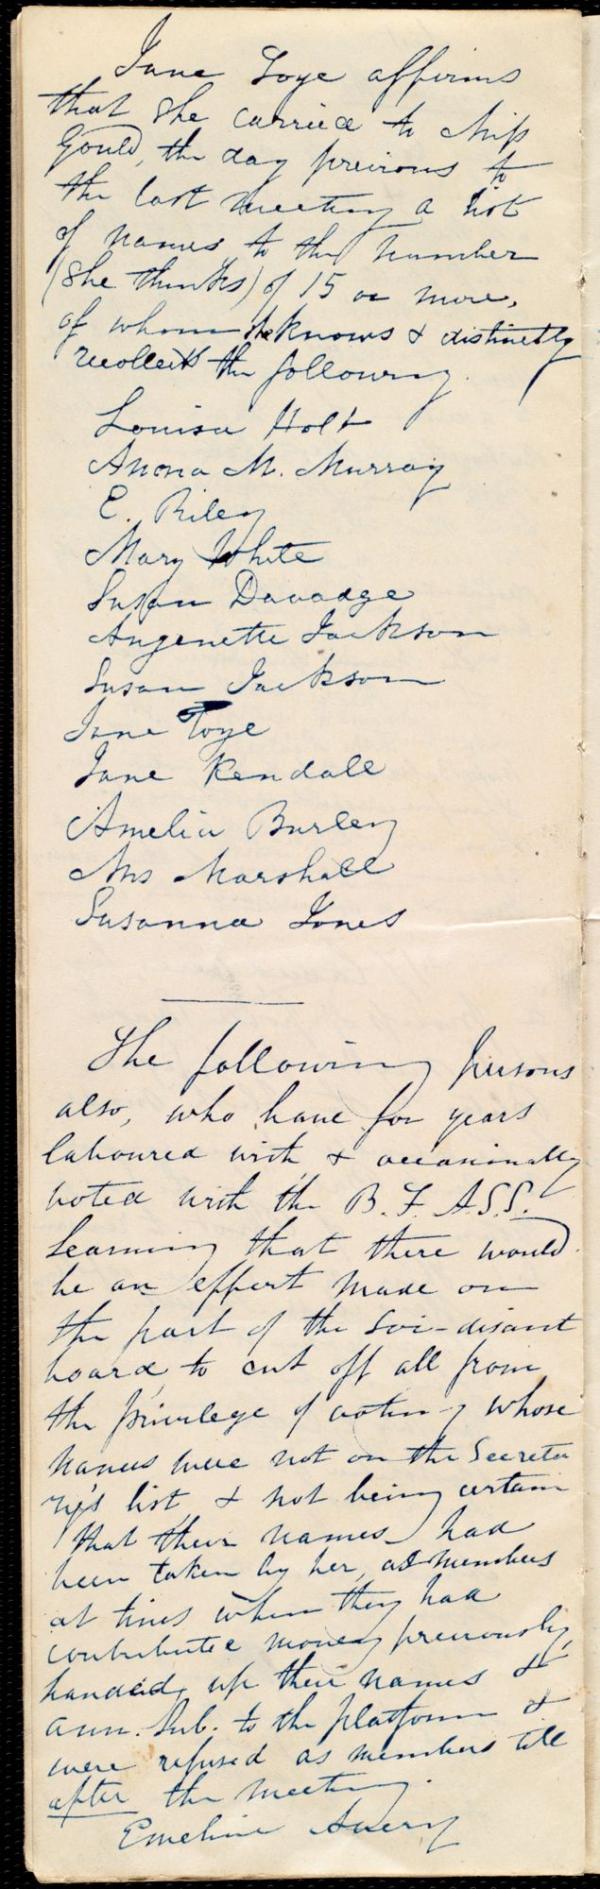 Jane Toye affirms
that she carried to Miss
Gould, the day previous to
the last meeting a list
of names to the number
(she thinks) of 15 or more,
of whom she knows & distinctly
recollects the following.
Louisa Holt
Anona M. Murray
E. Riley
Mary White
Susan Davadge
Angenette Jackson
Susan Jackson
Jane Toye
Jane Kendall
Amelia Burley
Mrs Marshall
Susanna Jones
The following persons
also, who have for years
laboured with & occasionally
voted with the B. F. A.S.S.
learning that there would
be an effort made on
the part of the soi-disant
board, to cut off all from
the privilege of voting whose
names were not on the Secreta
ry's list, & not being certain
that their names had
been taken by her, as members
at times when they had
contributed money previously,
handed, up their names &
ann. sub. to the platform &
were refused as members till
after the meeting.
Emeline Avery